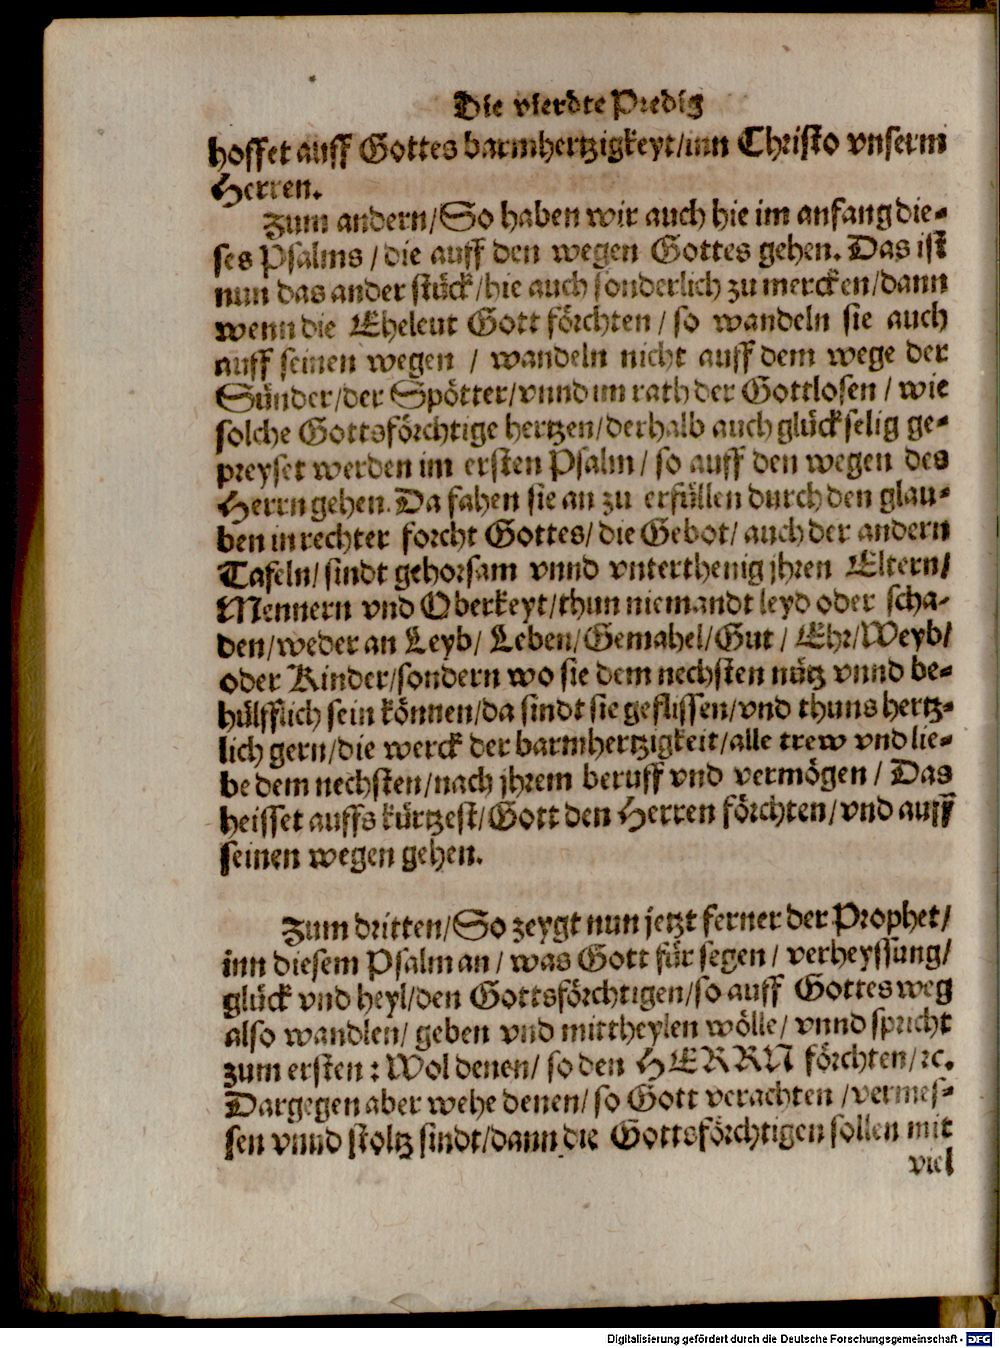 Die vierdte Predig
hoffet auff Gottes barmhertzigkeyt/inn Christo vnserm
Herren.
Zum andern/So haben wir auch hie im anfang die-
ses Psalms/die auff den wegen Gottes gehen. Das ist
nun das ander stück/hie auch sonderlich zu mercken/dann
wenn die Eheleut Gott förchten/so wandeln sie auch
auff seinen wegen / wandeln nicht auff dem wege der
Sünder/der Spötter/vnnd im rath der Gottlosen / wie
solche Gottsförchtige hertzen/derhalb auch glückselig ge-
preyset werden im ersten Psalm/ so auff den wegen des
Herrn gehen. Da fahen sie an zu erfüllen durch den glau-
ben in rechter forcht Gottes/ die Gebot/ auch der andern
Tafeln/ sindt gehorsam vnnd vnterthenig jhren Eltern/
Mennern vnd Oberkeyt/thun niemandt leyd oder scha-
den/weder an Leyb/ Leben/Gemahel/Gut / Ehr/Weyb/
oder Kinder/sondern wo sie dem nechsten nütz vnnd be-
hülfflich sein können/da sindt sie geflissen/vnd thuns hertz-
lich gern/die werck der barmhertzigkeit/alle trew vnd lie-
be dem nechsten/nach jhrem beruff vnd vermögen / Das
heisset auffs kürtzest/Gott den Herren förchten/vnd auff
seinen wegen gehen.
Zum dritten/So zeygt nun jetzt ferner der Prophet/
inn diesem Psalm an/ was Gott für segen/ verheyssung/
glück vnd heyl/den Gottsförchtigen/so auff Gottes weg
also wandlen/ geben vnd mittheylen wölle/ vnnd spricht
zum ersten: Wol denen/ so den HERRN förchten/ꝛc.
Dargegen aber wehe denen/ so Gott verachten /vermes-
sen vnnd stoltz sindt/dann die Gottsförchtigen sollen mit
viel
Digitalisierung gefördert durch die Deutsche Forschungsgemeinschaft - DFG